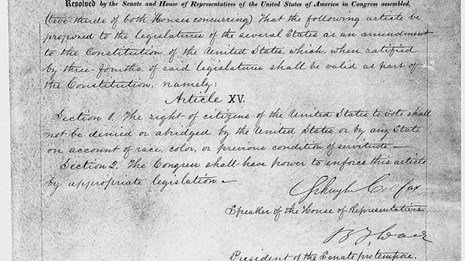 Resolved by the Senate and House of Representatives of the United States of America in Congress assembled,
(two-thirds of both Houses concurring) That the following article be
proposed to the legislatures of the several States as an amendment
to the Constitution of the United States, which, when ratified
by three-fourths of said legislatures shall be valid as part of
the Constitution, namely:
Article XV.
Section 1. The right of citizens of the United States to vote shall
not be denied or abridged by the United States or by any State
on account of race, color, or previous condition of servitude.—
Section 2. The Congress shall have power to enforce this article
by appropriate legislation—
Schuyler Colfax
Speaker of the House of Representatives.
B F Wade
President of the Senate protempore.